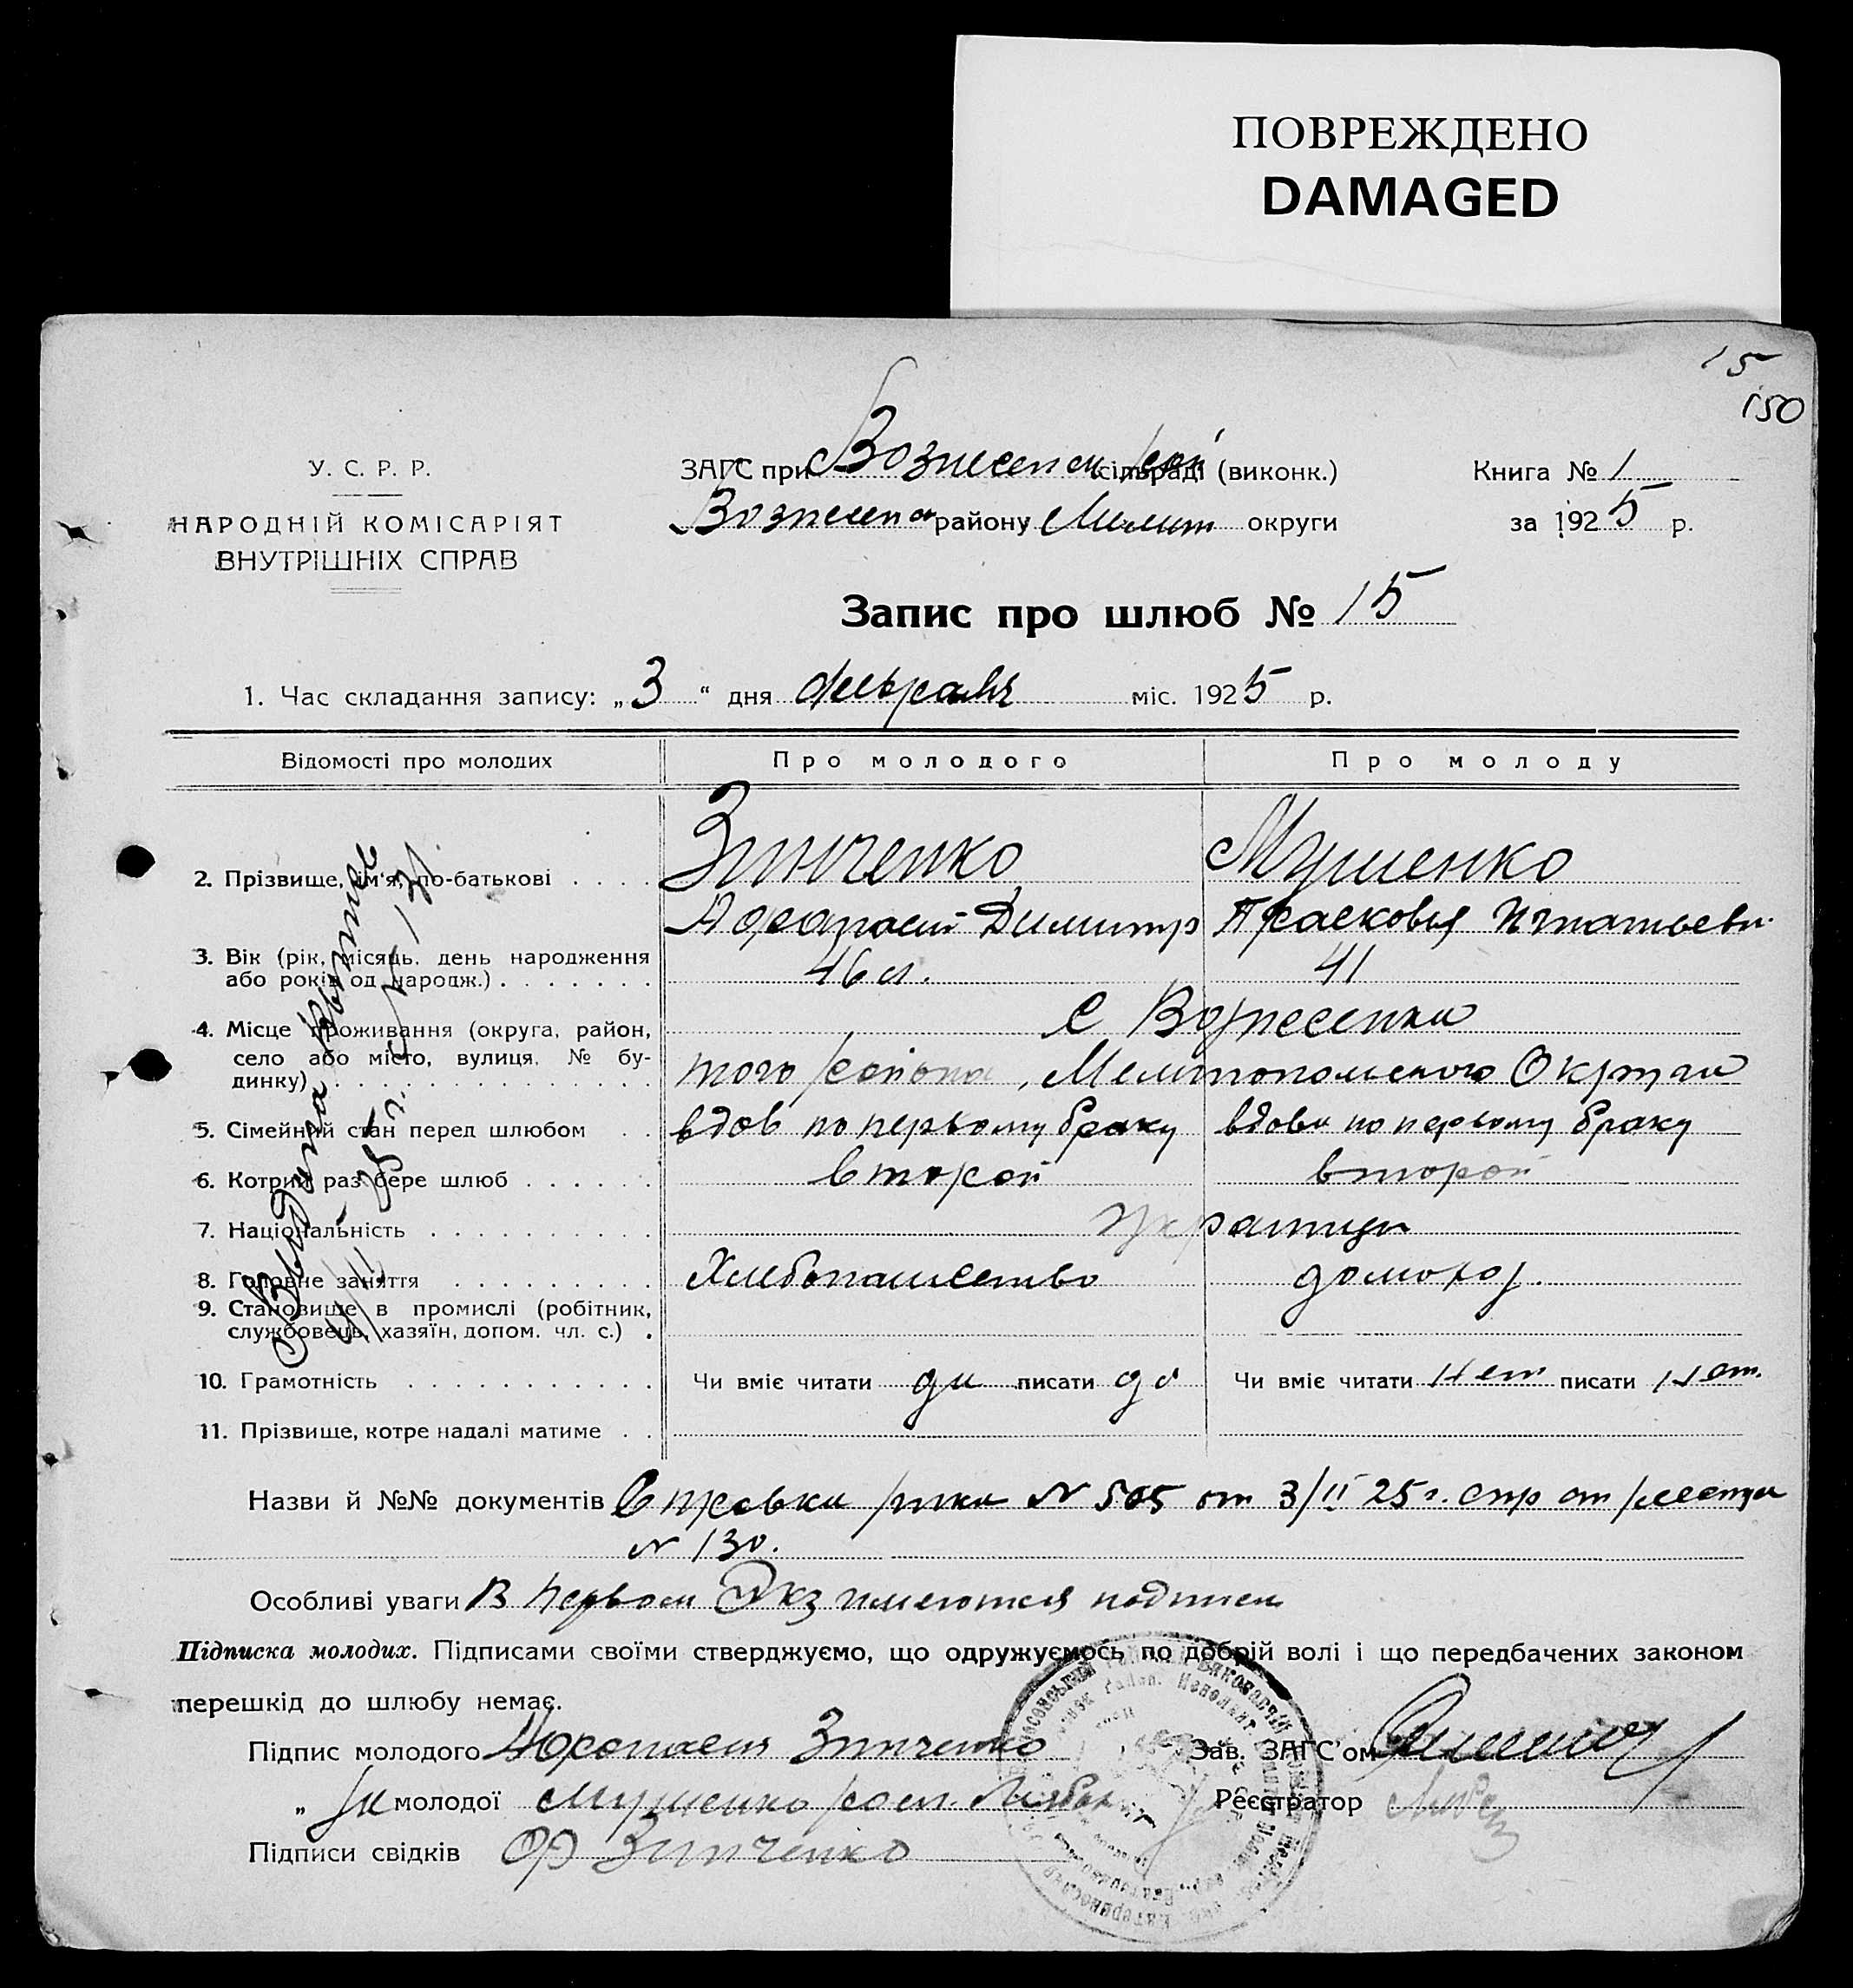 ПОВРЕЖДЕНО
DAMAGED
15
150
У. С. Р. Р.
НАРОДНІЙ КОМІСАРІЯТ
ВНУТРІШНІХ СПРАВ
ЗАГС при Вознесенск сільраді (виконк.)
Книга № 1
Вознесенск району Мелит округи
за 1925 р.
Запис про шлюб № 15
1. Час складання запису: „3“ дня февраля міс. 1925 р.
Відомості про молодих
Про молодого
Про молоду
2. Прізвище, ім'я, по-батькові
Зинченко
Мушенко
Афанасий Димитр
Прасковья Игнатьевн
3. Вік (рік, місяць, день народження
або років од народж.)
46 л.
41
4. Місце проживання (округа, район,
село або місто, вулиця, № бу-
динку)
с Вознесенки
того района, Мелитопольского Округи
5. Сімейний стан перед шлюбом
вдов по первому браку
вдова по первому браку
6. Котрий раз бере шлюб
второй
второй
7. Національність
украинцы
8. Головне заняття
Хлебопашество
домохоз.
9. Становище в промислі (робітник,
службовець, хазяїн, допом. чл. с.)
10. Грамотність
Чи вміє читати да писати да
Чи вміє читати нет писати нет.
11. Прізвище, котре надалі матиме
Выдана выпись
Назви й №№ документів Справка рика № 505 от 3/II 25 г. спр от
№ 130.
Особливі уваги В первом Экз имеются подписи
Підписка молодих. Підписами своїми стверджуємо, що одружуємось по добрій волі і що передбачених законом
перешкід до шлюбу немає.
Підпис молодого Афанасий Зинченко
Зав. ЗАГС'ом
„ молодої Мушенко
Реєстратор
Підписи свідків Зинченко